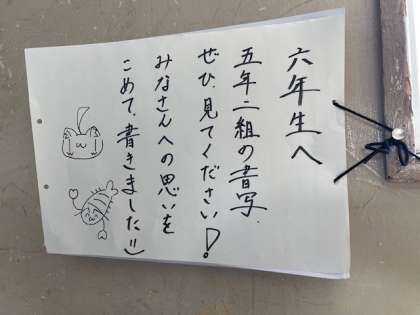 六年生へ
五年二組の書写.
ぜひ、見てください!
みなさんへの思いを
こめて、書きました!!